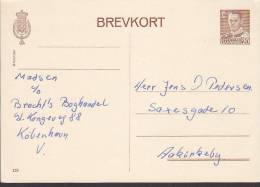 BREVKORT
DANMARK
Madsen
c/o
Brechts Boghandel
Gl. Kongevej 88
København
V.
Herr Jens J Pedersen
Saxesgade 10
Aakirkeby